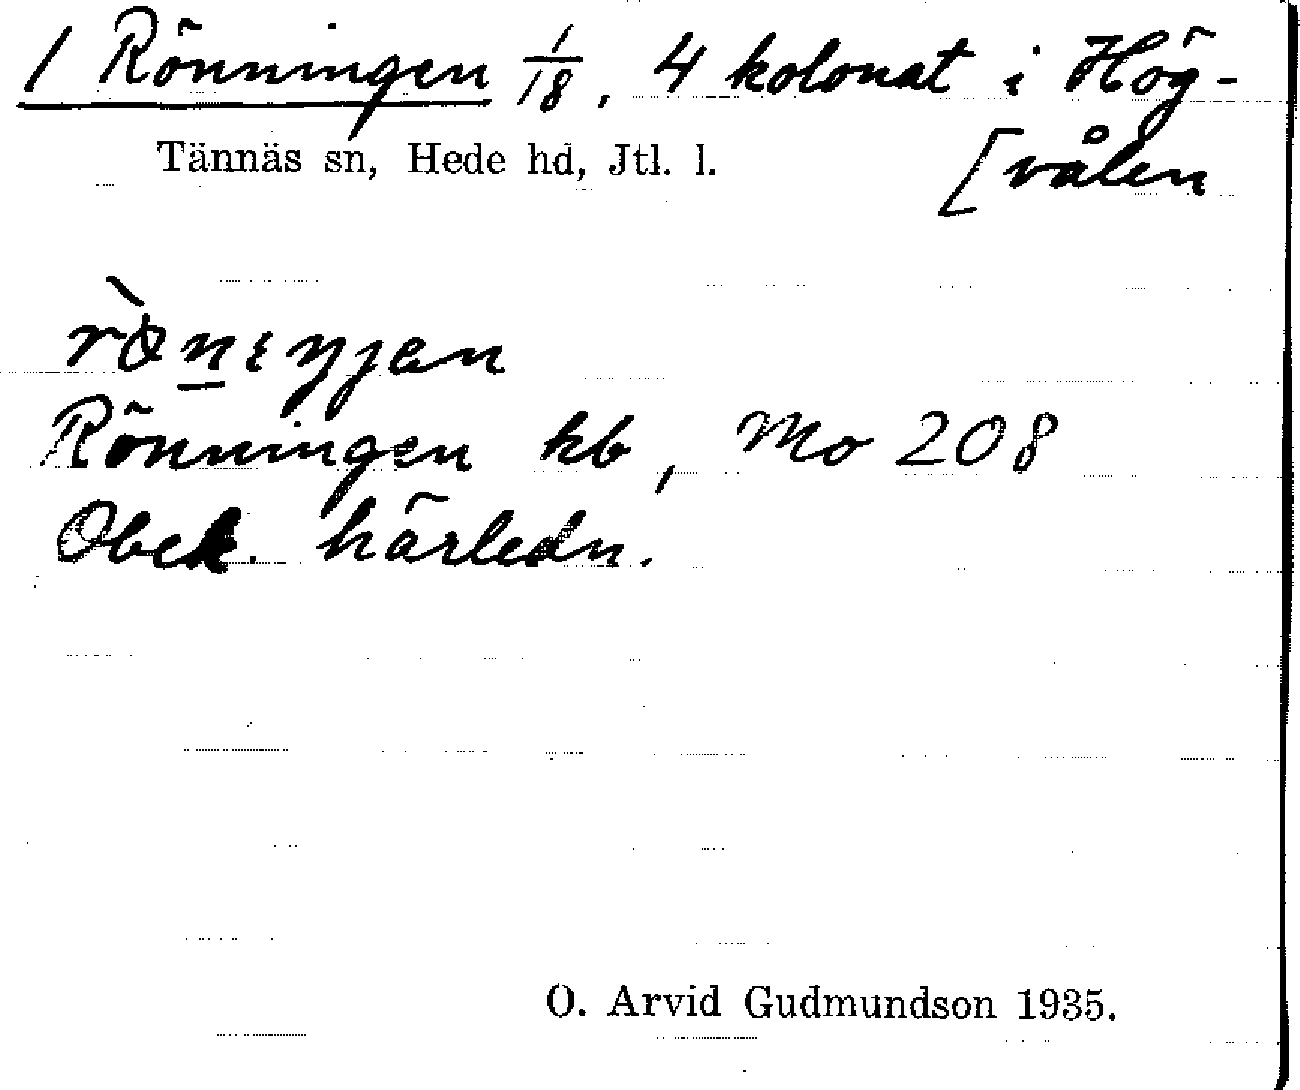 1 Rönningen 1/18, 4 kolonat i Hög-
[vålen
Tännäs sn, Hede hd, Jtl. l.
Rönningen kb, Mo 208
Obek. härledn.
O. Arvid Gudmundson 1935.